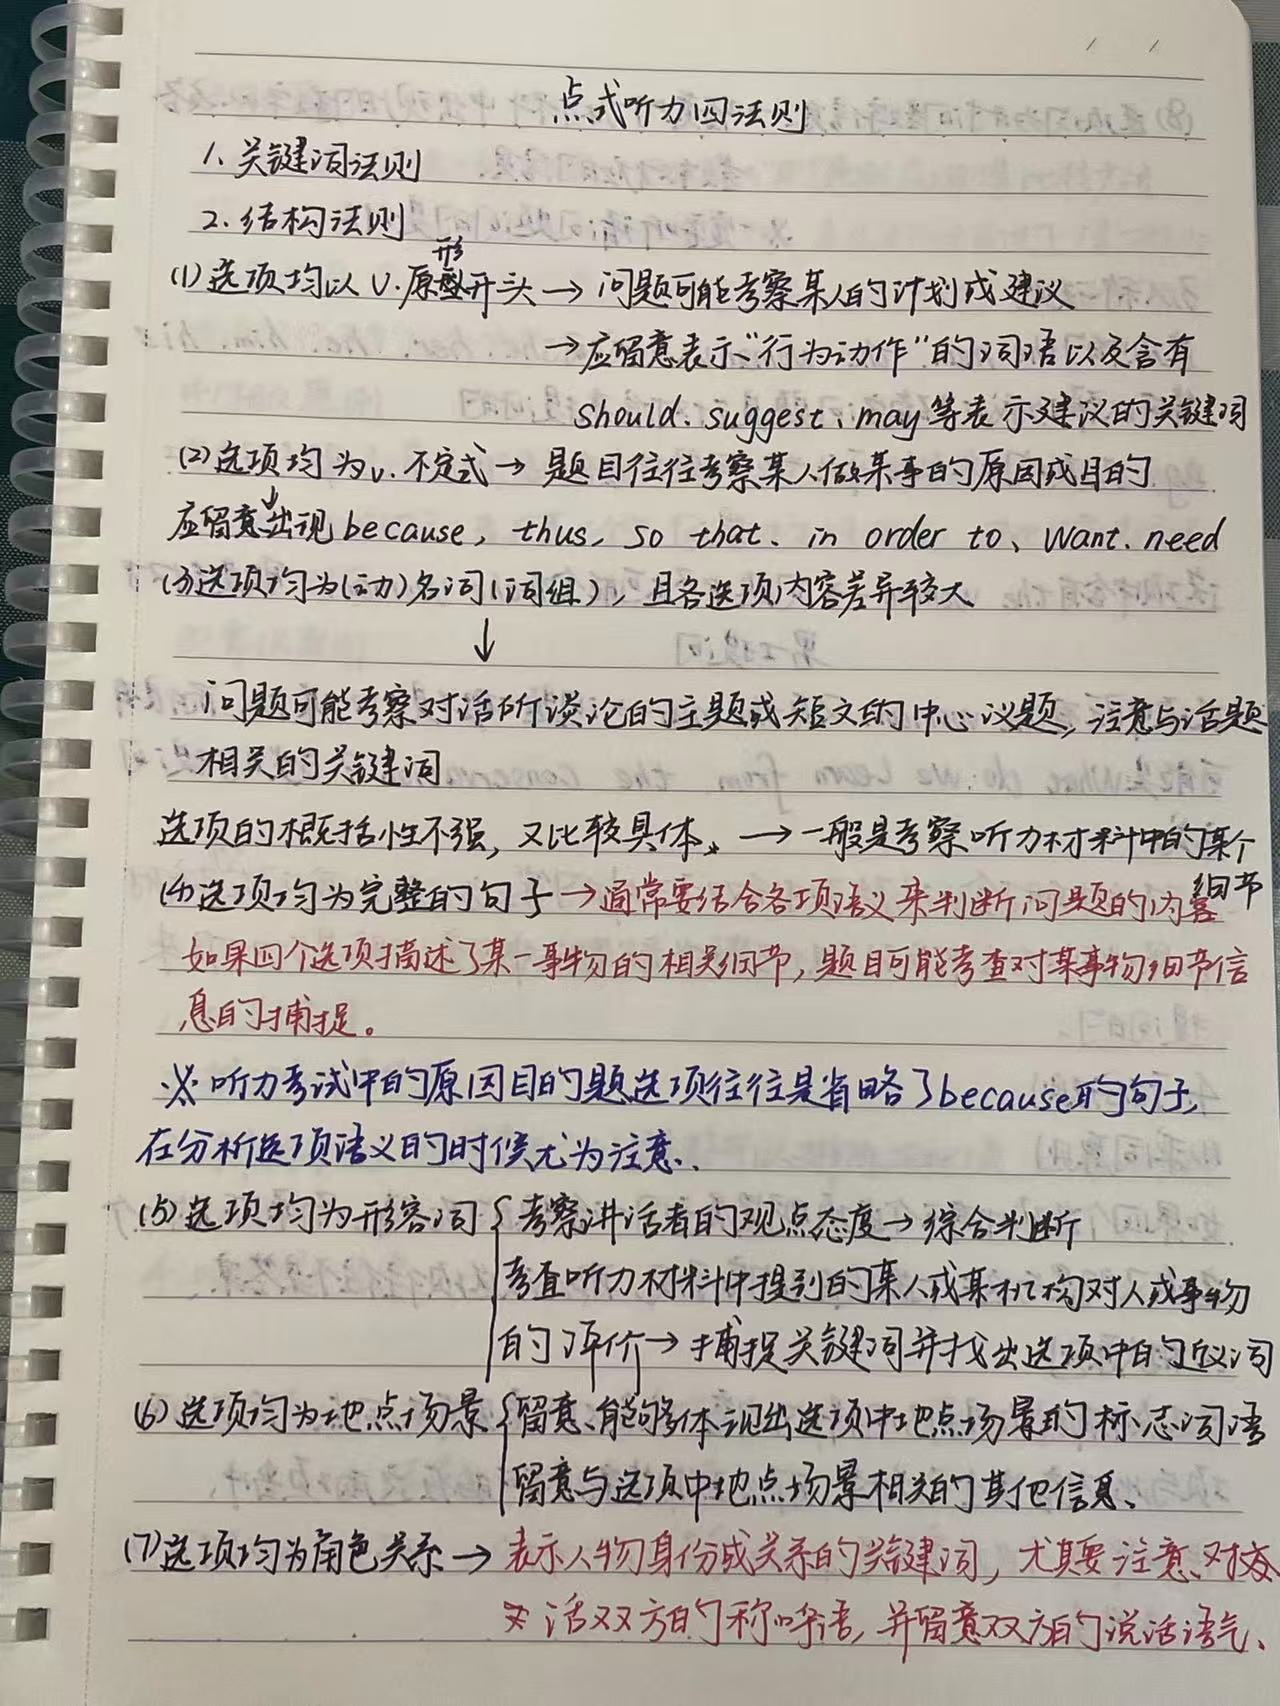 点式听力四法则
1. 关键词法则
2. 结构法则
(1) 选项均以 V. 原形开头 → 问题可能考察某人的计划或建议
→ 应留意表示“行为动作”的词语以及含有
should、suggest、may 等表示建议的关键词
(2) 选项均为 v. 不定式 → 题目往往考察某人做某事的原因或目的
应留意出现 because, thus, so that、in order to、want、need
(3) 选项均为(动)名词(词组), 且各选项内容差异较大
↓
问题可能考察对话所谈论的主题或短文的中心议题, 注意与话题
相关的关键词
选项的概括性不强, 又比较具体. → 一般是考察听力材料中的某个
细节
(4) 选项均为完整的句子 → 通常要结合各项语义来判断问题的内容
如果四个选项描述了某一事物的相关细节, 题目可能考查对某事物细节信
息的捕捉。
※ 听力考试中的原因目的题选项往往是省略了because的句子,
在分析选项语义的时候尤为注意.
(5) 选项均为形容词 { 考察讲话者的观点态度 → 综合判断
考查听力材料中提到的某人或某机构对人或事物
的评价 → 捕捉关键词并找出选项中的近义词
(6) 选项均为地点场景 { 留意、能够体现出选项中地点场景的标志词语
留意与选项中地点场景相关的其他信息、
(7) 选项均为角色关系 → 表示人物身份或关系的关键词, 尤其要注意对
话双方的称呼语, 并留意双方的说话语气、